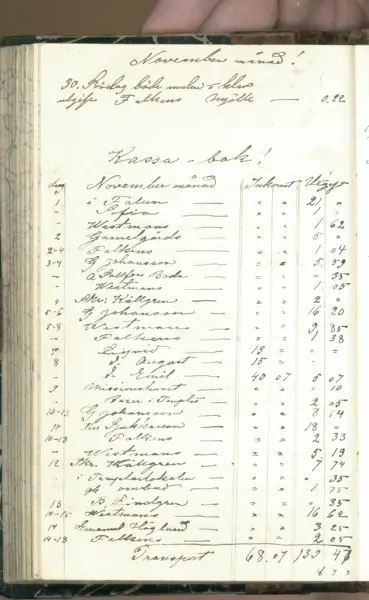 November månad!
30. Söndag både mulen o klar
utgift Falkens Mjölk — 0,22
Kassa-bok!
dag November månad Inkomst Utgift
1 i Falun — " " 21 "
" Sofia — " " 1 "
" Westmans — " " 1 62
2 Gamelgårds — " " 5 "
2-4 Falkens — " " 1 04
3-4 G Johansson — " " 5 59
— Boda — " " " 35
— Westmans — " " 1 05
" Skr. Källgren — " " 2 "
5-6 G Johansson — " " 16 20
5-8 Westmans — " " 9 85
— Falkens — " " 1 38
" Sigrid — 13 " " "
8 d. August — 15 " " "
d. Emil — 40 07 5 07
9 Missionshuset — " " " 10
— " " 2 05
10-13 G Johansson — " " 8 54
11 — " " 18 "
10-13 Falkens — " " 2 33
" Westmans — " " 5 19
12 Skr. Källgren — " " 7 74
" i Templarlokalen — " " " 35
" — " " 1 75
13 B. Lindgren — " " " 35
14-15 Westmans — " " 16 62
14 Emanuel Höglund — " " 3 25
14-18 Falkens — " " 2 05
Transport 68,07 132 47